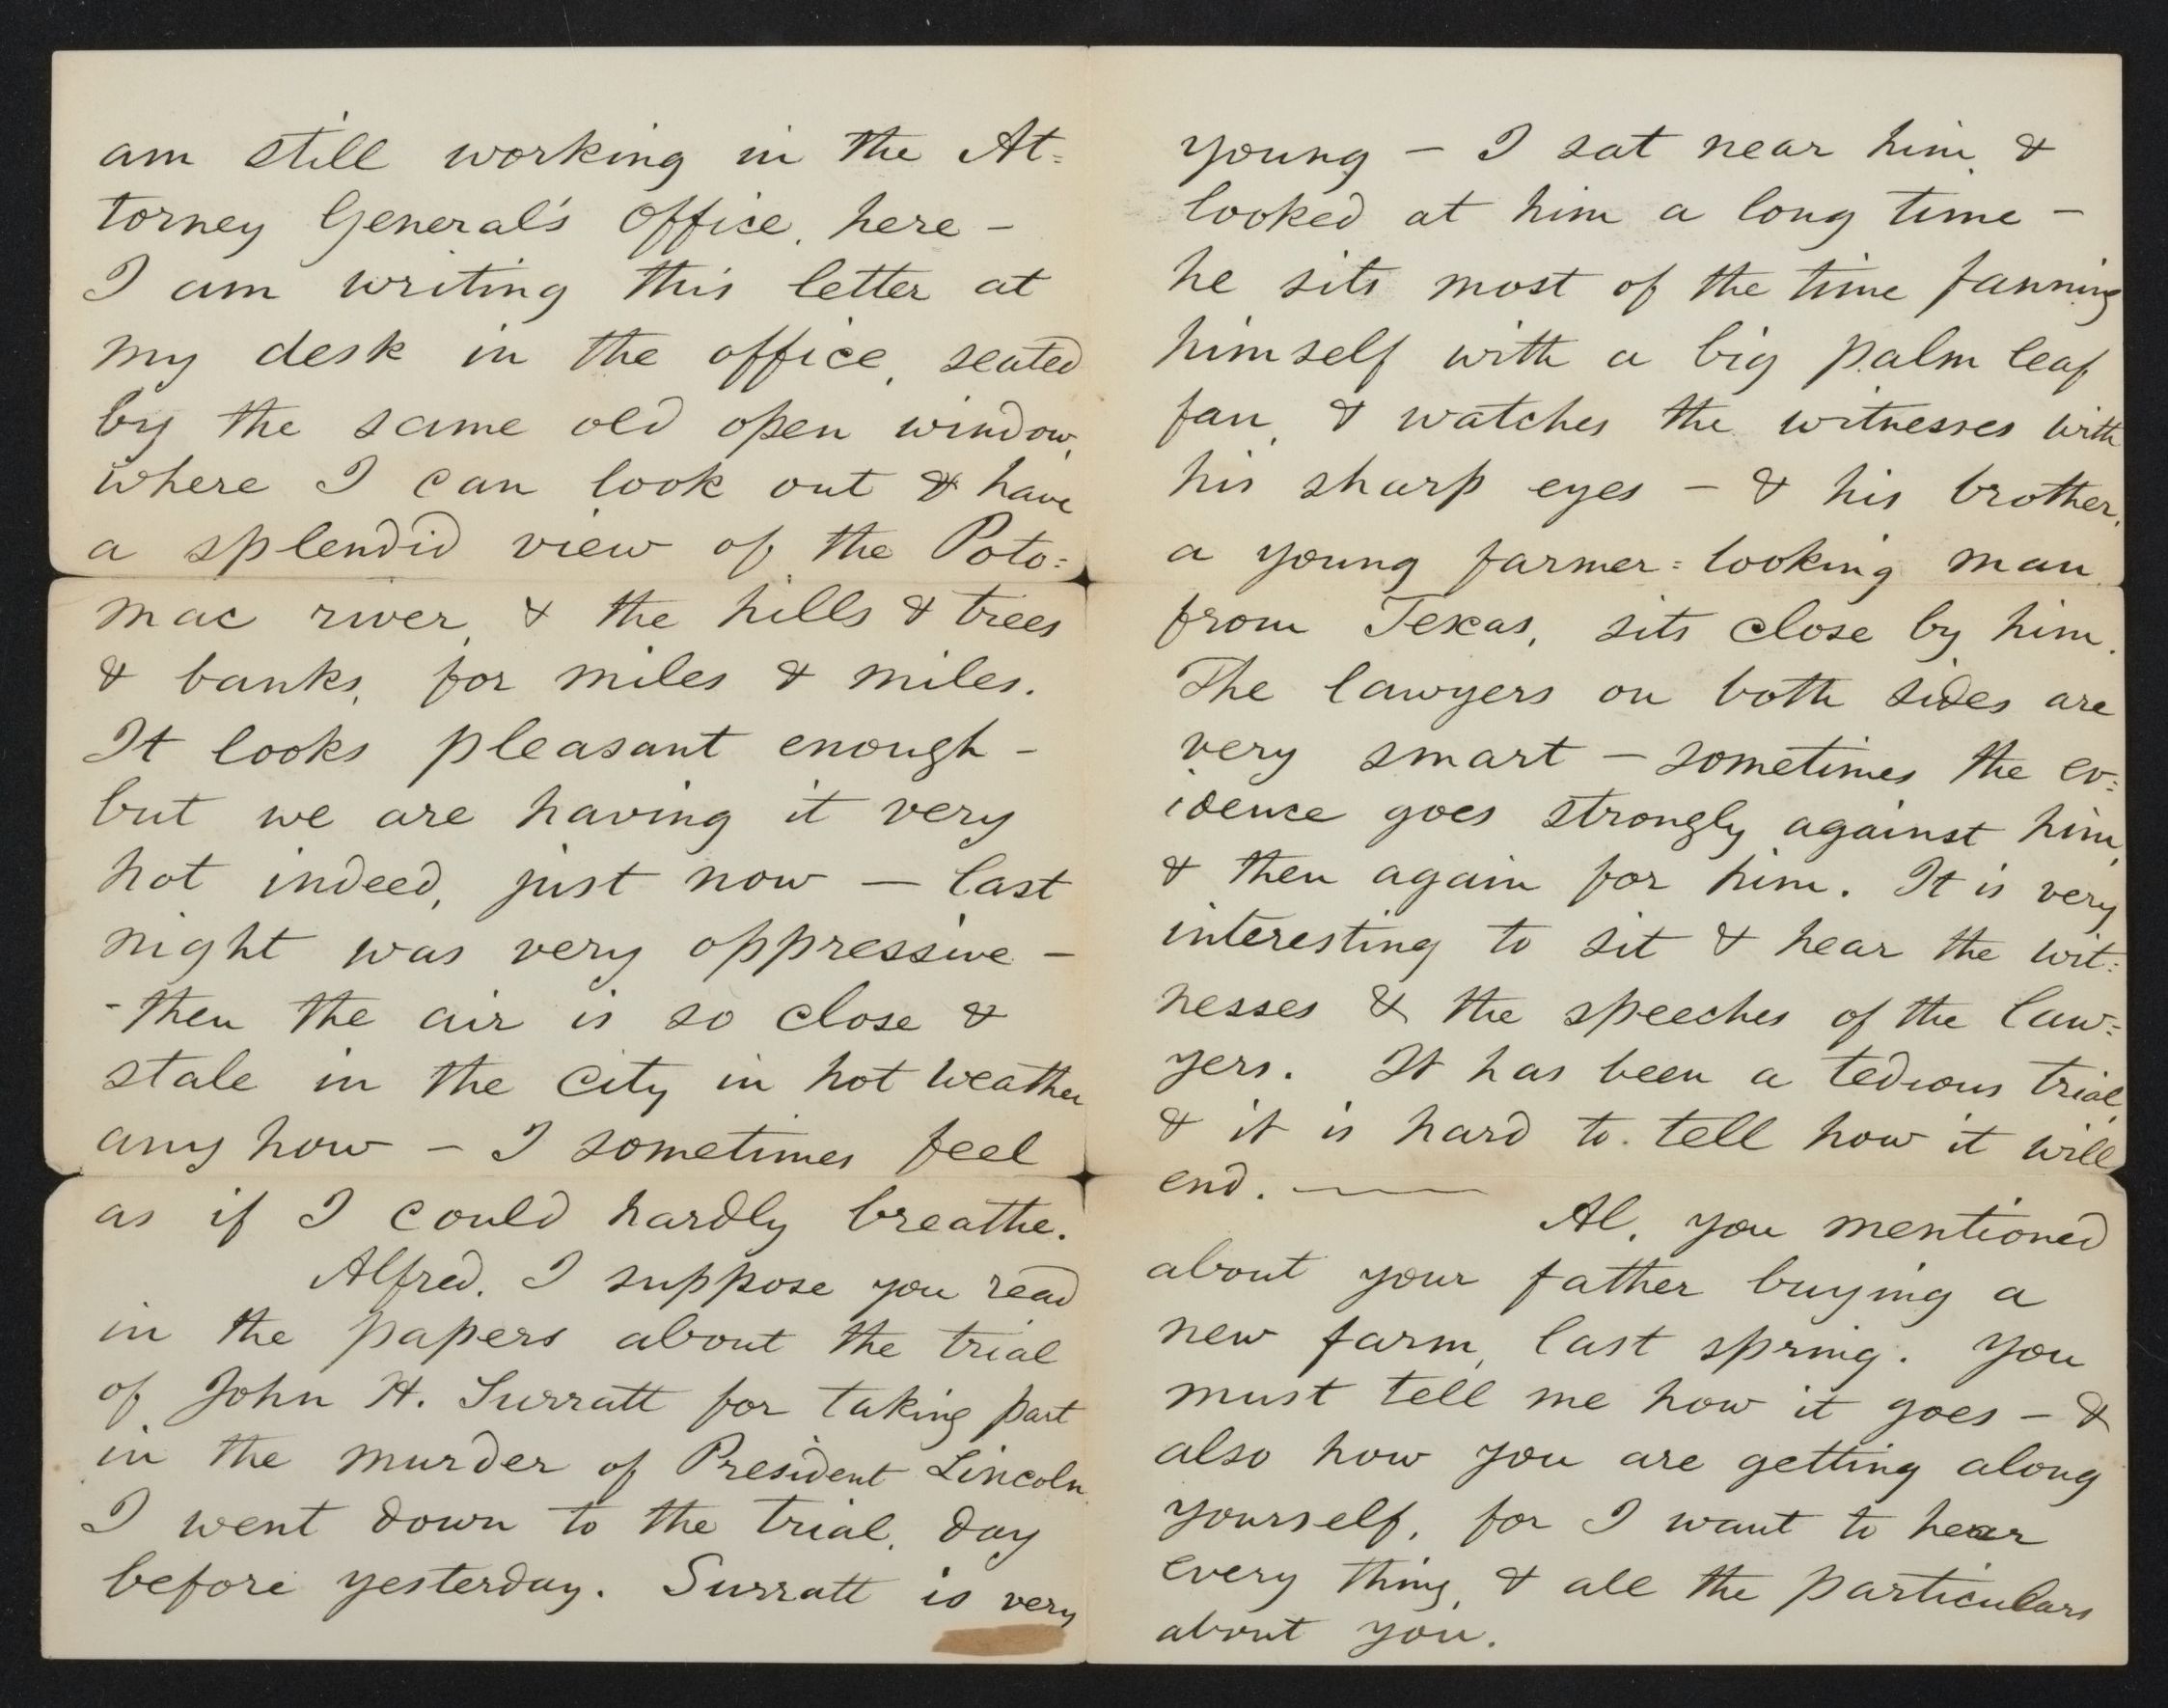 am still working in the At=
torney General's Office, here –
I am writing this letter at
my desk in the office, seated
by the same old open window,
where I can look out & have
a splendid view of the Poto=
mac river, & the hills & trees
& banks, for miles & miles.
It looks pleasant enough –
but we are having it very
hot indeed, just now – last
night was very oppressive –
- then the air is so close &
stale in the city in hot weather
any how – I sometimes feel
as if I could hardly breathe.
Alfred, I suppose you read
in the papers about the trial
of John H. Surratt for taking part
in the murder of President Lincoln
I went down to the trial, day
before yesterday. Surratt is very
young – I sat near him &
looked at him a long time –
he sits most of the time fanning
himself with a big palm leaf
fan, & watches the witnesses with
his sharp eyes – & his brother,
a young farmer=looking man
from Texas, sits close by him.
The lawyers on both sides are
very smart – sometimes the ev=
idence goes strongly against him,
& then again for him. It is very
interesting to sit & hear the wit=
nesses & the speeches of the law=
yers. It has been a tedious trial,
& it is hard to tell how it will
end. ———
Al, you mentioned
about your father buying a
new farm, last spring. You
must tell me how it goes – &
also how you are getting along
yourself, for I want to hear
every thing, & all the particulars
about you.